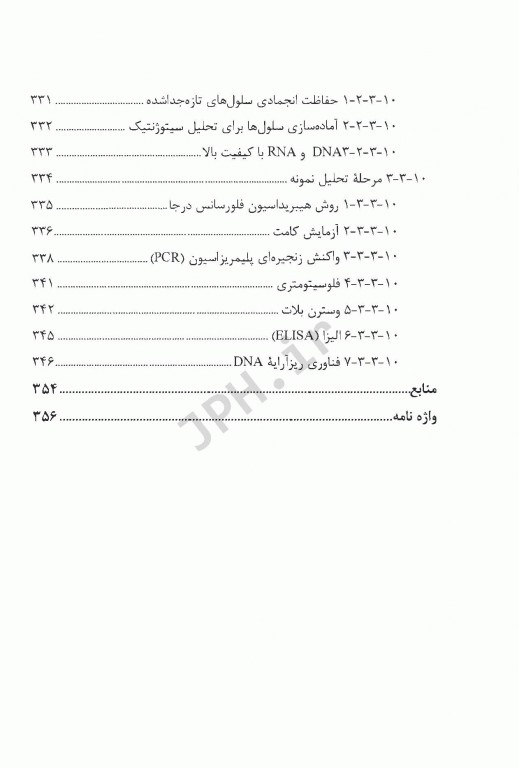 ۱-۲-۳-۱۰ حفاظت انجمادی سلول‌های تازه‌جداشده ................................. ۳۳۱
۲-۲-۳-۱۰ آماده‌سازی سلول‌ها برای تحلیل سیتوژنتیک .......................... ۳۳۲
۳-۲-۳-۱۰ DNA و RNA با کیفیت بالا ...................................................... ۳۳۳
۳-۳-۱۰ مرحلهٔ تحلیل نمونه ...................................................................................... ۳۳۴
۱-۳-۳-۱۰ روش هیبریداسیون فلورسانس درجا ......................................... ۳۳۵
۲-۳-۳-۱۰ آزمایش کامت ................................................................................. ۳۳۶
۳-۳-۳-۱۰ واکنش زنجیره‌ای پلیمریزاسیون (PCR) .................................. ۳۳۸
۴-۳-۳-۱۰ فلوسیتومتری ................................................................................ ۳۴۱
۵-۳-۳-۱۰ وسترن بلات ................................................................................... ۳۴۲
۶-۳-۳-۱۰ الیزا (ELISA) ............................................................................... ۳۴۵
۷-۳-۳-۱۰ فناوری ریزآرایهٔ DNA .................................................................. ۳۴۶
منابع ............................................................................................................................ ۳۵۴
واژه نامه ...................................................................................................................... ۳۵۶
JPH.ir